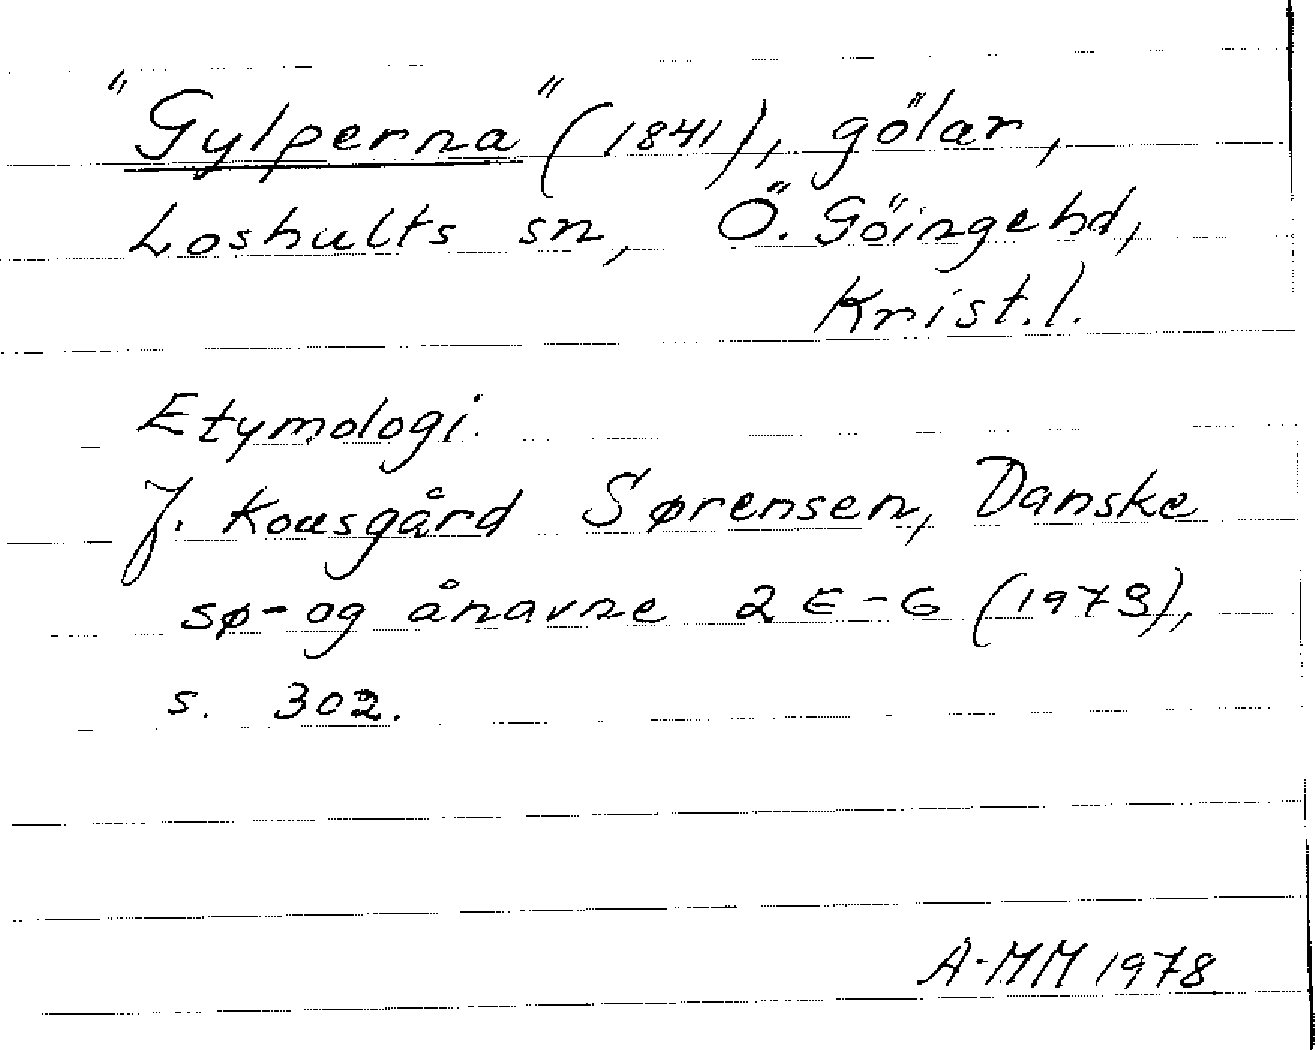 "Gylperna" (1841), gölar,
Loshults sn, Ö. Göingehd,
Krist. l.
Etymologi.
J. Kousgård Sørensen, Danske
sø- og ånavne 2 E-G (1973),
s. 302.
A-MM 1978